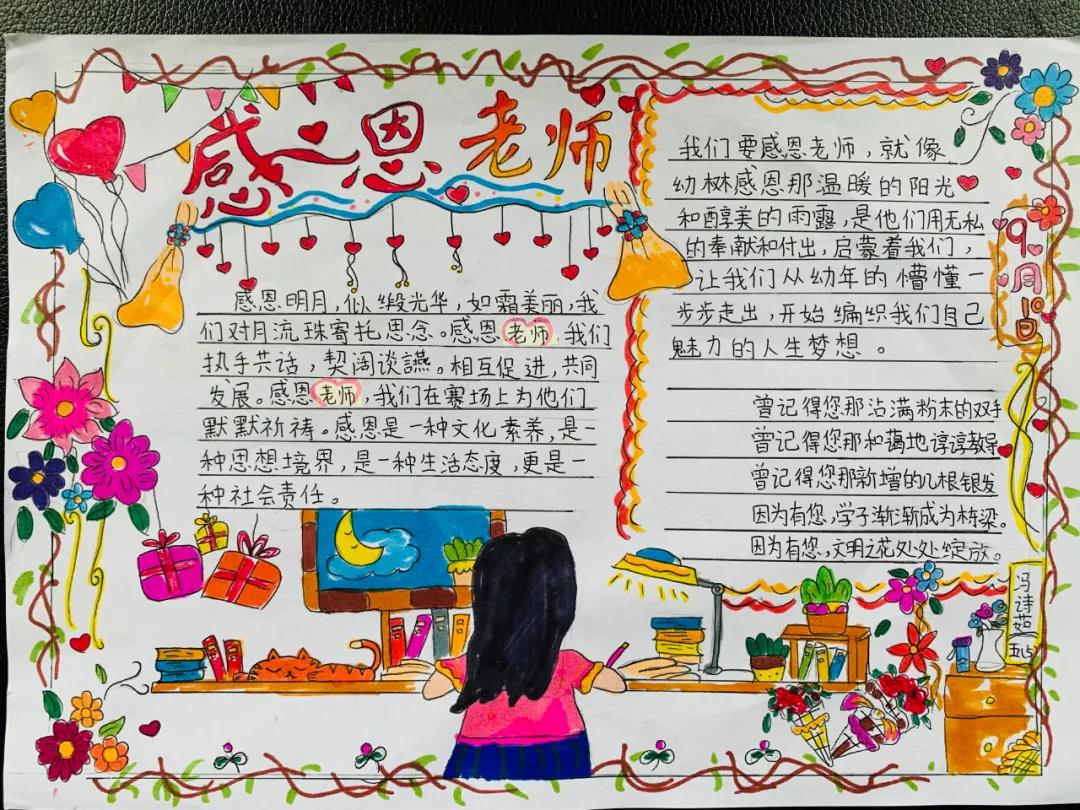 感恩老师
感恩明月，似缎光华，如霜美丽，我
们对月流珠寄托思念。感恩老师，我们
执手共话，契阔谈讌。相互促进，共同
发展。感恩老师，我们在赛场上为他们
默默祈祷。感恩是一种文化素养，是一
种思想境界，是一种生活态度，更是一
种社会责任。
我们要感恩老师，就像
幼林感恩那温暖的阳光
和醇美的雨露，是他们用无私
的奉献和付出，启蒙着我们，
让我们从幼年的懵懂一
步步走出，开始编织我们自己
魅力的人生梦想。
曾记得您那沾满粉末的双手
曾记得您那和蔼地谆谆教导
曾记得您那新增的几根银发
因为有您，学子渐渐成为栋梁。
因为有您，文明之花处处绽放。
9月10日
冯诗茹
五(5